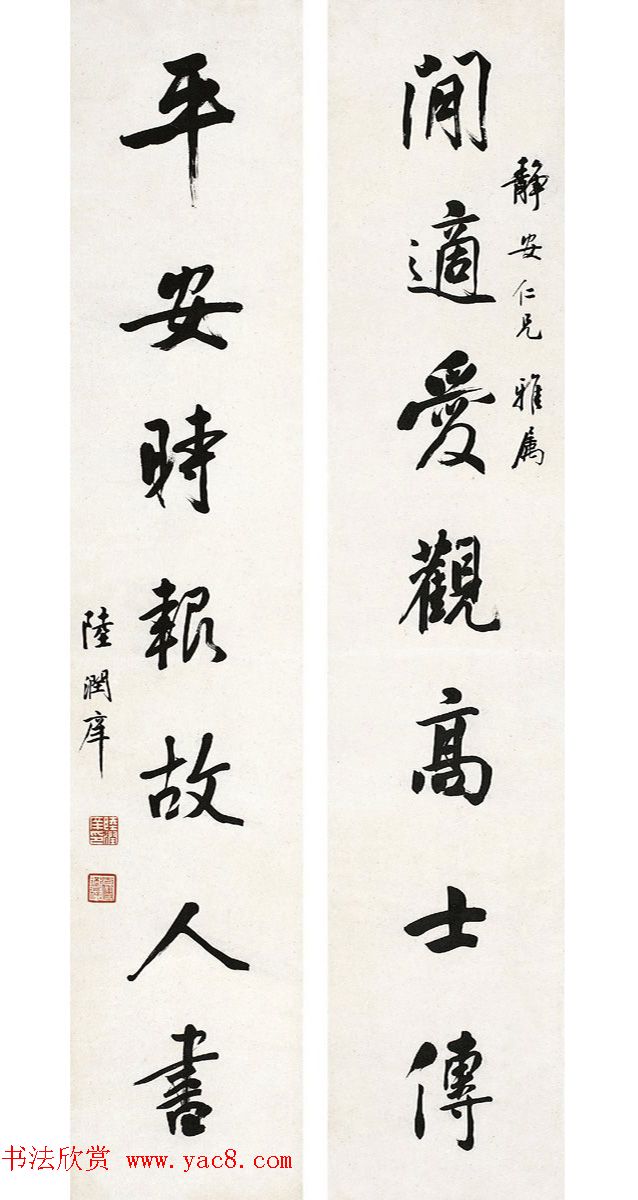 閒適愛觀高士傳
靜安仁兄雅属
平安時報故人書
陸潤庠
书法欣赏 www.yac8.com